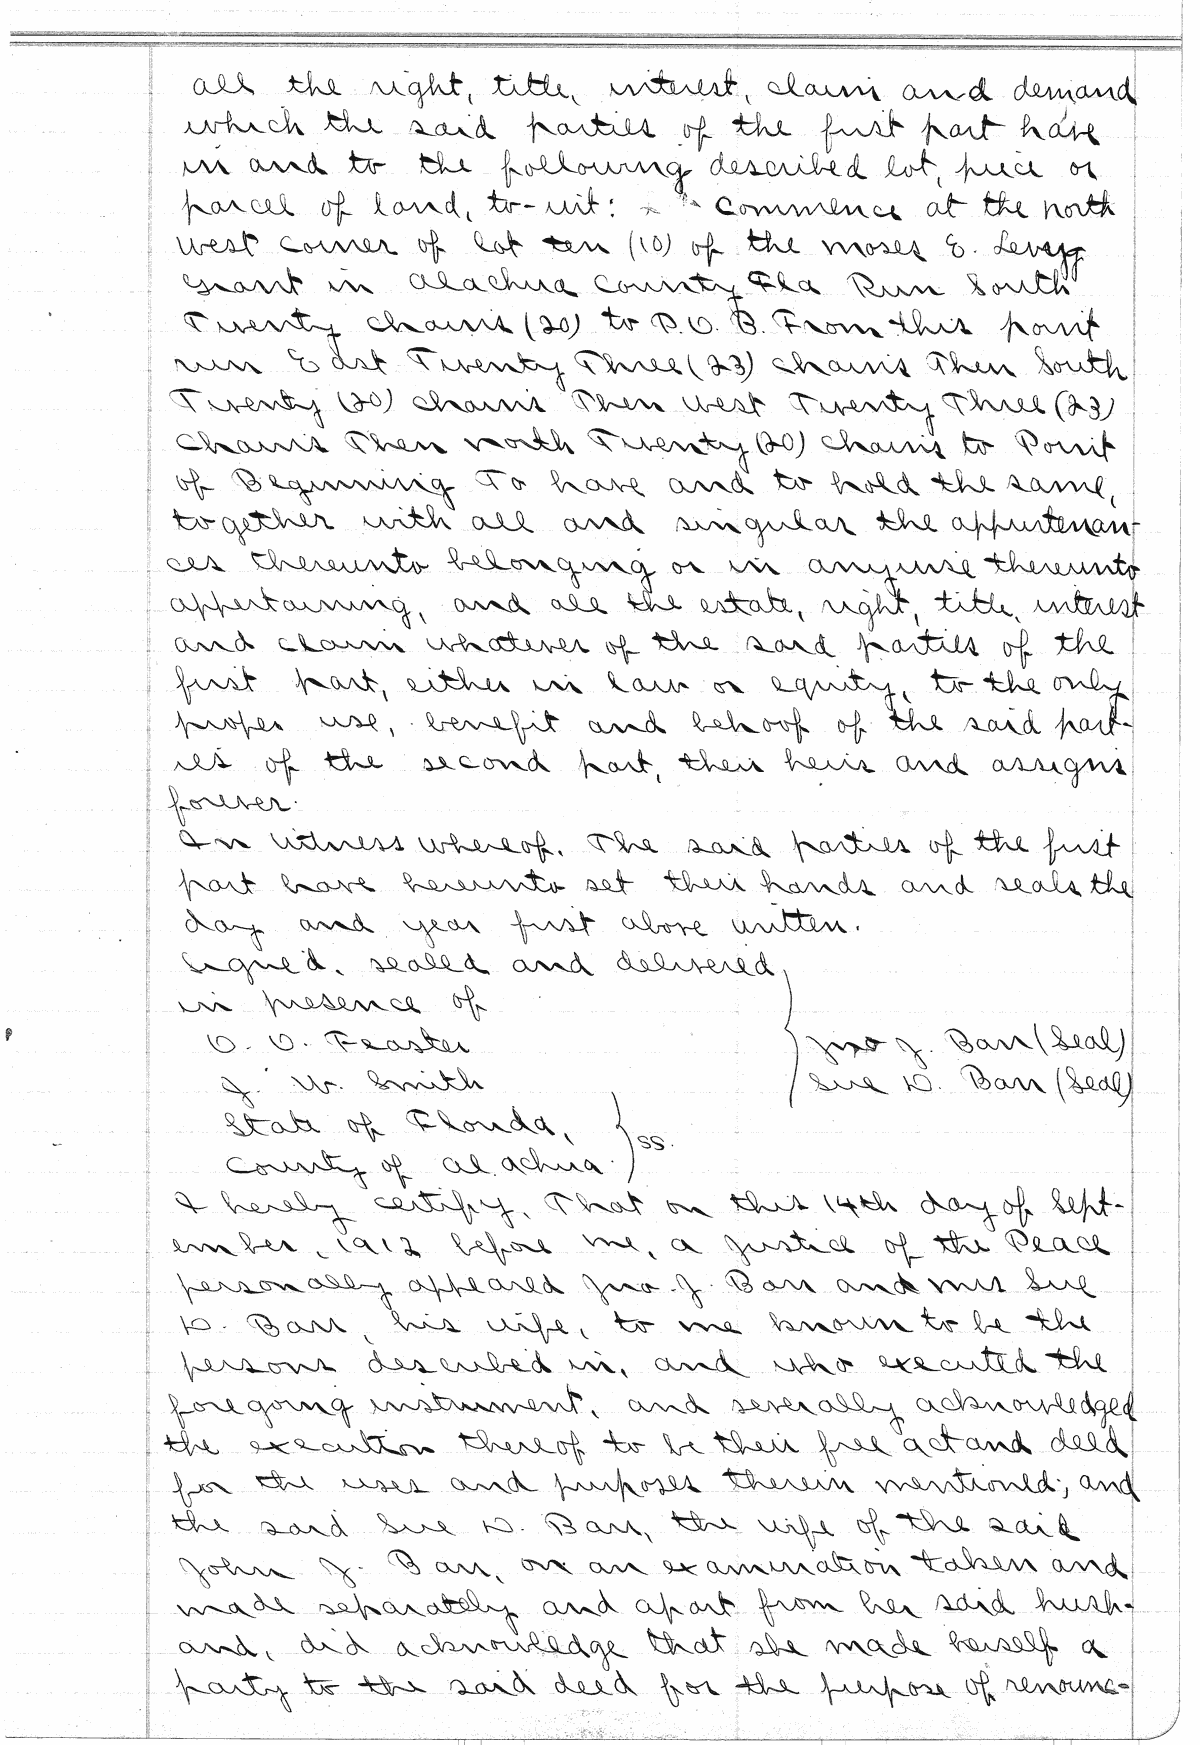 all the right, title, interest, claim and demand
which the said parties of the first part have
in and to the following described lot, piece or
parcel of land, to-wit: Commence at the north
west corner of lot ten (10) of the moses E. Levy
grant in alachua county Fla Run South
Twenty chains (20) to P.O.B. From this point
run East Twenty Three (23) chains Then South
Twenty (20) chains Then west Twenty Three (23)
chains Then north Twenty (20) chains to Point
of Beginning To have and to hold the same,
together with all and singular the appurtenan-
ces thereunto belonging or in anywise thereunto
appertaining, and all the estate, right, title, interest
and claim whatever of the said parties of the
first part, either in law or equity, to the only
proper use, benefit and behoof of the said part-
ies of the second part, their heirs and assigns
forever.
In witness whereof. The said parties of the first
part have hereunto set their hands and seals the
day and year first above written.
Signed, sealed and delivered
in presence of
O. O. Feaster Jno J. Barr (Seal)
J. W. Smith Sue D. Barr (Seal)
State of Florida,
County of alachua. } ss.
I hereby certify, That on this 14th day of Sept-
ember, 1912 before me, a Justice of the Peace
personally appeared Jno. J. Barr and mrs Sue
D. Barr, his wife, to me known to be the
persons described in, and who executed the
foregoing instrument, and severally acknowledged
the execution thereof to be their free act and deed
for the uses and purposes therein mentioned; and
the said Sue D. Barr, the wife of the said
John J. Barr, on an examination taken and
made separately and apart from her said husb-
and, did acknowledge that she made herself a
party to the said deed for the purpose of renounc-